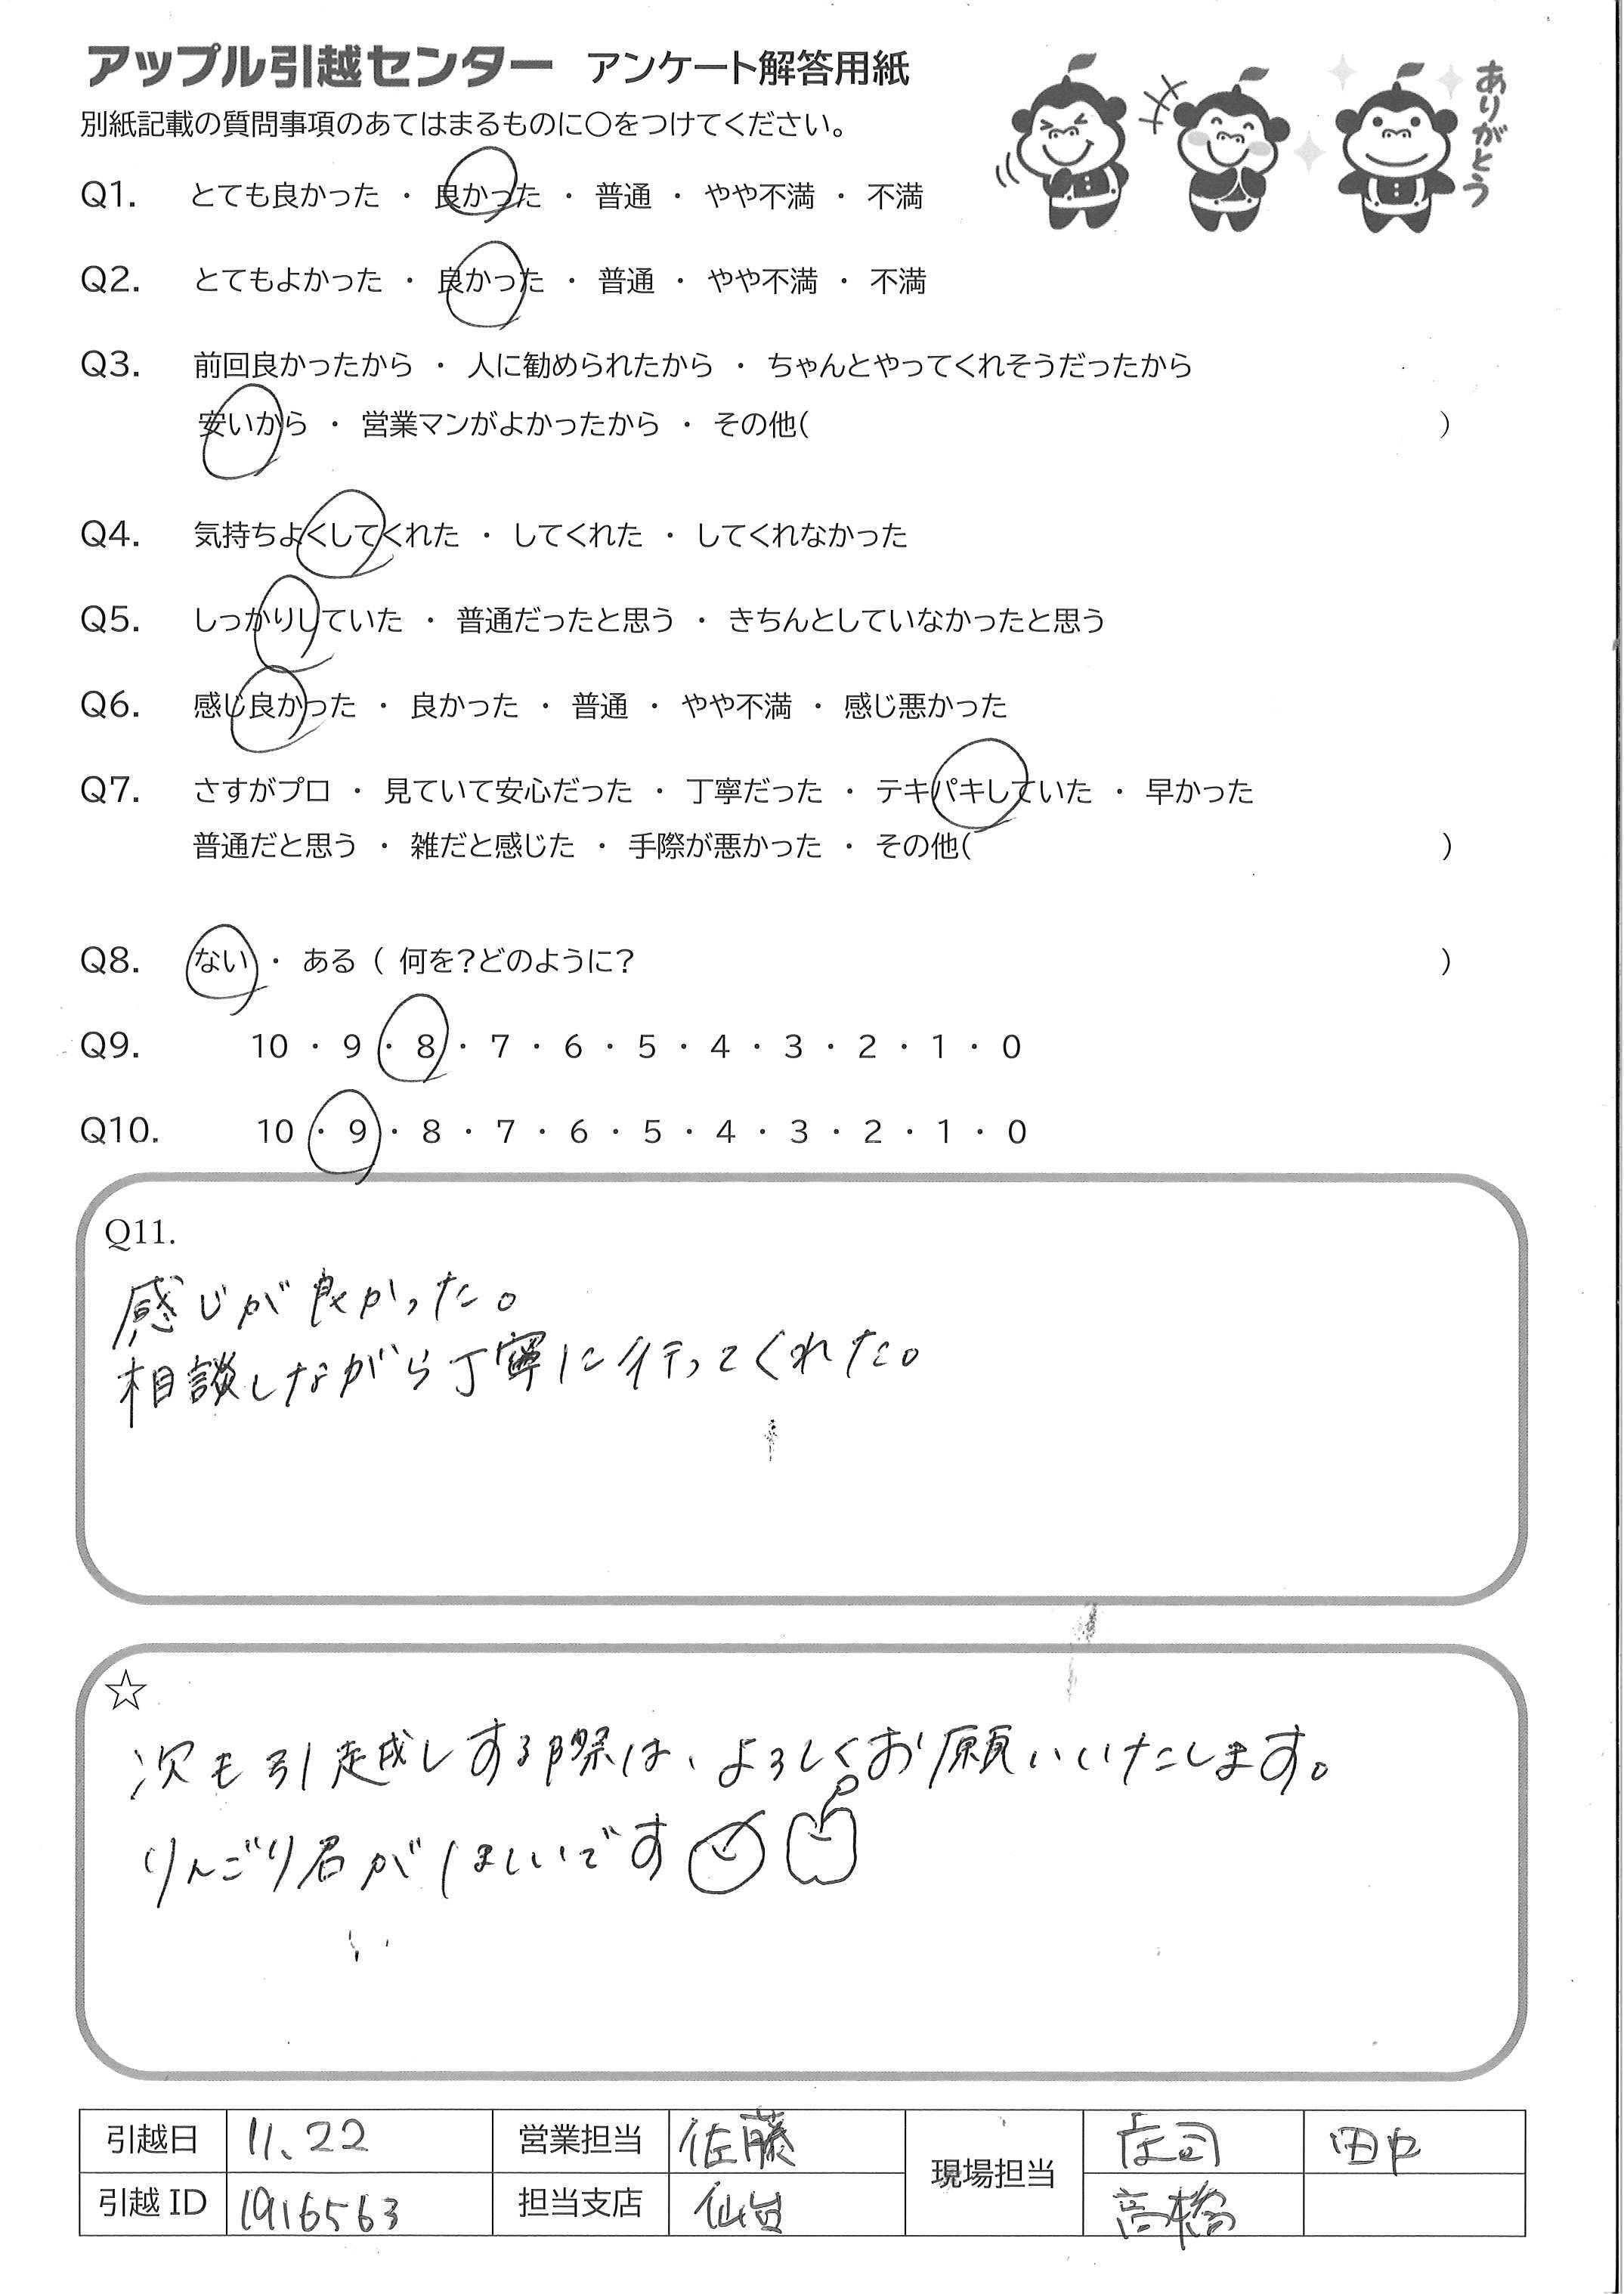 アップル引越センター アンケート解答用紙
ありがとう
別紙記載の質問事項のあてはまるものに〇をつけてください。
Q1. とても良かった ・ 良かった ・ 普通 ・ やや不満 ・ 不満
Q2. とてもよかった ・ 良かった ・ 普通 ・ やや不満 ・ 不満
Q3. 前回良かったから ・ 人に勧められたから ・ ちゃんとやってくれそうだったから
安いから ・ 営業マンがよかったから ・ その他( )
Q4. 気持ちよくしてくれた ・ してくれた ・ してくれなかった
Q5. しっかりしていた ・ 普通だったと思う ・ きちんとしていなかったと思う
Q6. 感じ良かった ・ 良かった ・ 普通 ・ やや不満 ・ 感じ悪かった
Q7. さすがプロ ・ 見ていて安心だった ・ 丁寧だった ・ テキパキしていた ・ 早かった
普通だと思う ・ 雑だと感じた ・ 手際が悪かった ・ その他( )
Q8. ない ・ ある ( 何を?どのように? )
Q9. 10 ・ 9 ・ 8 ・ 7 ・ 6 ・ 5 ・ 4 ・ 3 ・ 2 ・ 1 ・ 0
Q10. 10 ・ 9 ・ 8 ・ 7 ・ 6 ・ 5 ・ 4 ・ 3 ・ 2 ・ 1 ・ 0
Q11.
感じが良かった。
相談しながら丁寧に行ってくれた。
☆
次も引越しする際は、よろしくお願いいたします。
りんごり君がほしいです
引越日 11.22 営業担当 佐藤 現場担当 庄司 田中
引越ID 1916563 担当支店 仙台 高橋